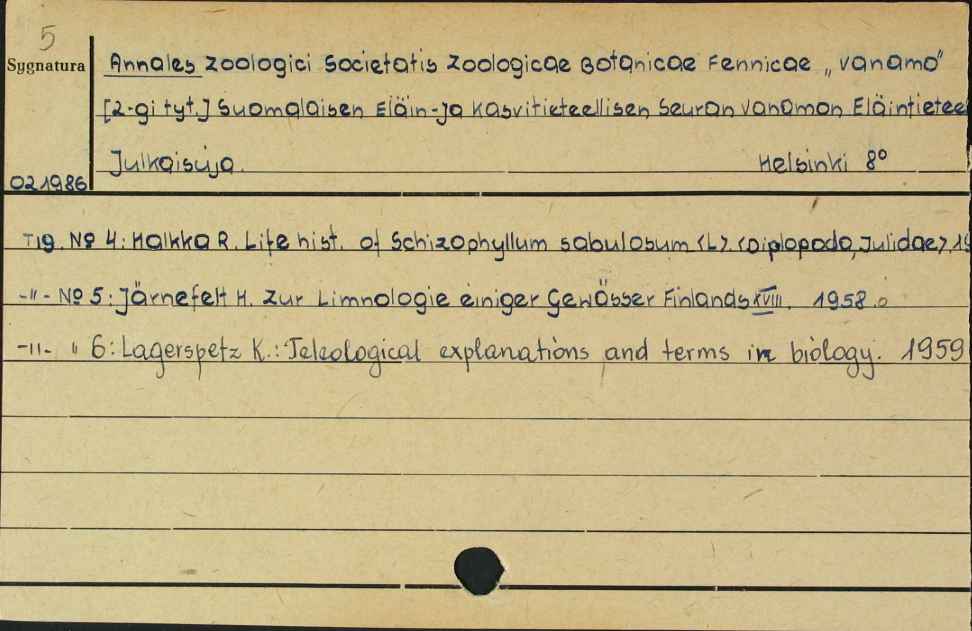 5
Sygnatura
Annales Zoologici Societatis Zoologicae Botanicae Fennicae „Vanamo"
[2-gi tyt.] Suomalaisen Eläin-ja Kasvitieteellisen Seuran Vanamon Eläintietee
Julkaisuja. Helsinki 8°
021986
T19. № 4: Halkka R. Life hist. of Schizophyllum sabulosum <L>. <Diplopoda, Julidae>. 19
-"- № 5: Järnefelt H. Zur Limnologie einiger Gewässer Finlands XVIII. 1958.
-"- " 6: Lagerspetz K.: Teleological explanations and terms in biology. 1959